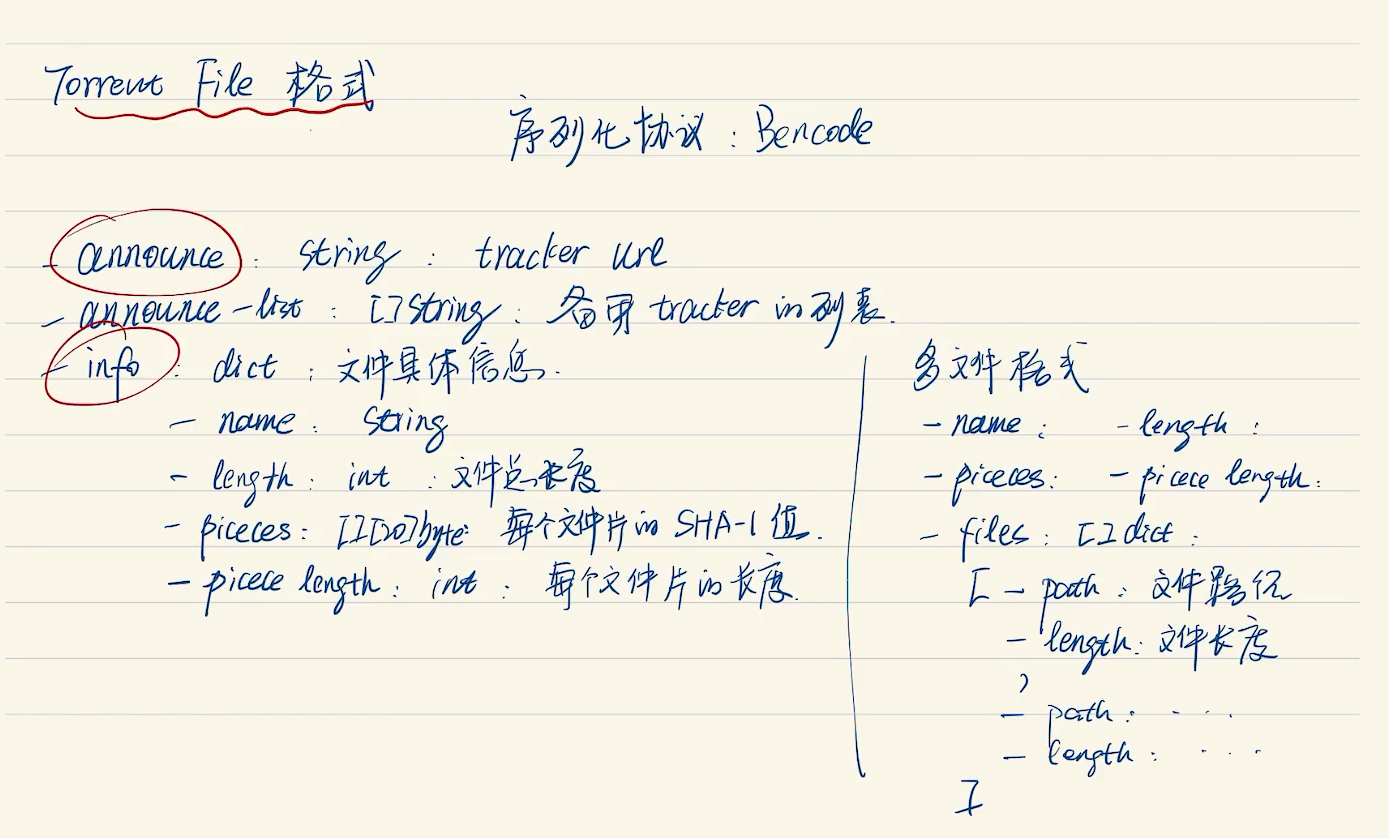 Torrent File 格式
序列化协议：Bencode
- announce : string : tracker url
- announce-list : []string : 备用 tracker 的列表.
- info : dict : 文件具体信息.
- name : string
- length : int : 文件总长度
- piceces : [][20]byte : 每个文件片的 SHA-1 值.
- picece length : int : 每个文件片的长度.
多文件格式
- name : - length :
- piceces : - picece length :
- files : []dict :
[ - path : 文件路径
- length : 文件长度
,
- path : ...
- length : ...
]